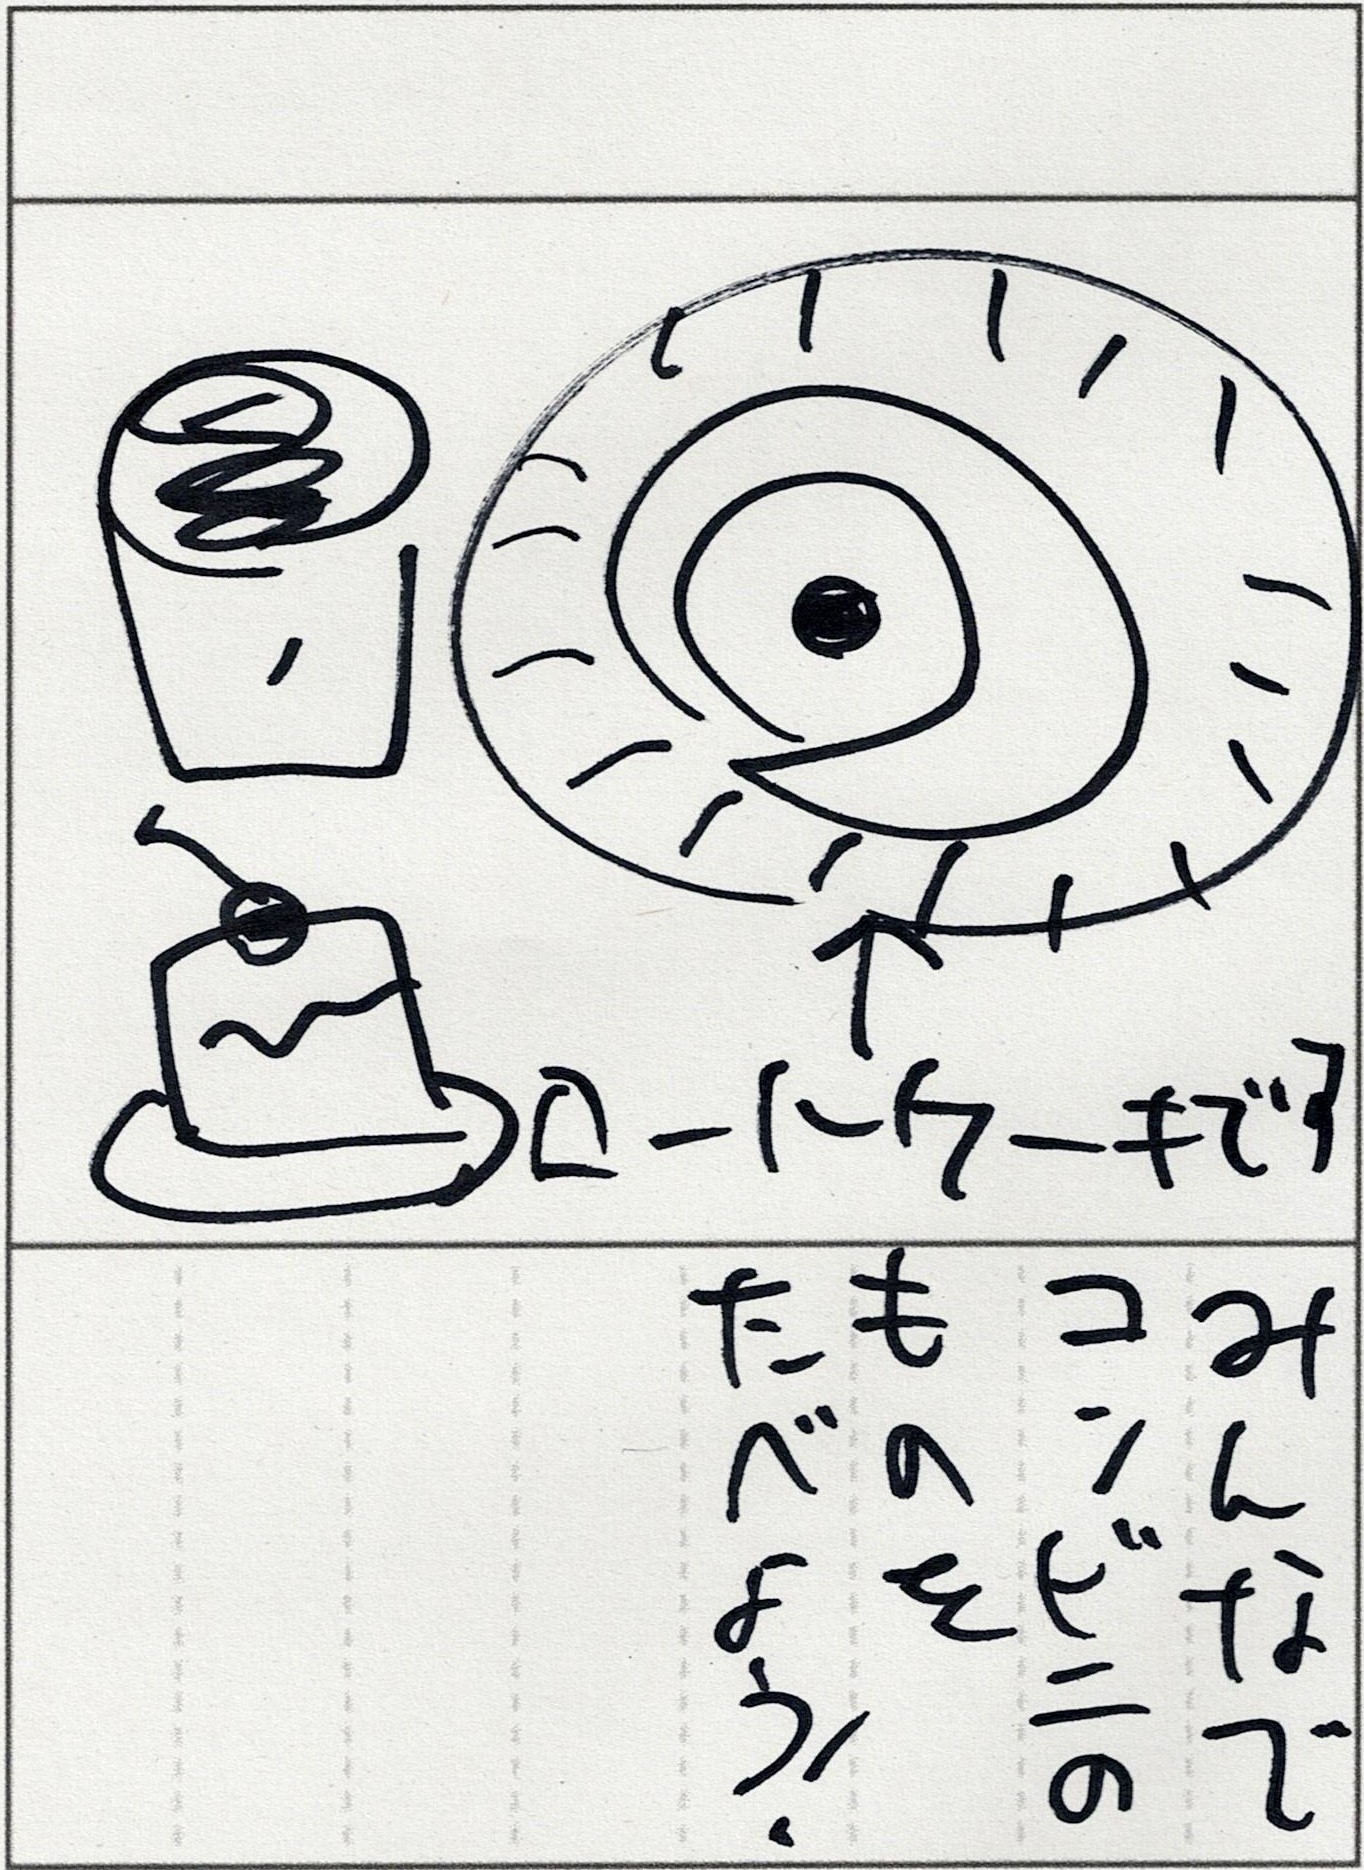 ロートケーキです
みんなで
コンビニの
ものを
たべよう!